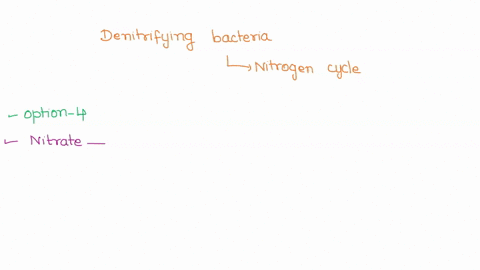 Denitrifying bacteria
↳ Nitrogen cycle
- option-4
✓ Nitrate —